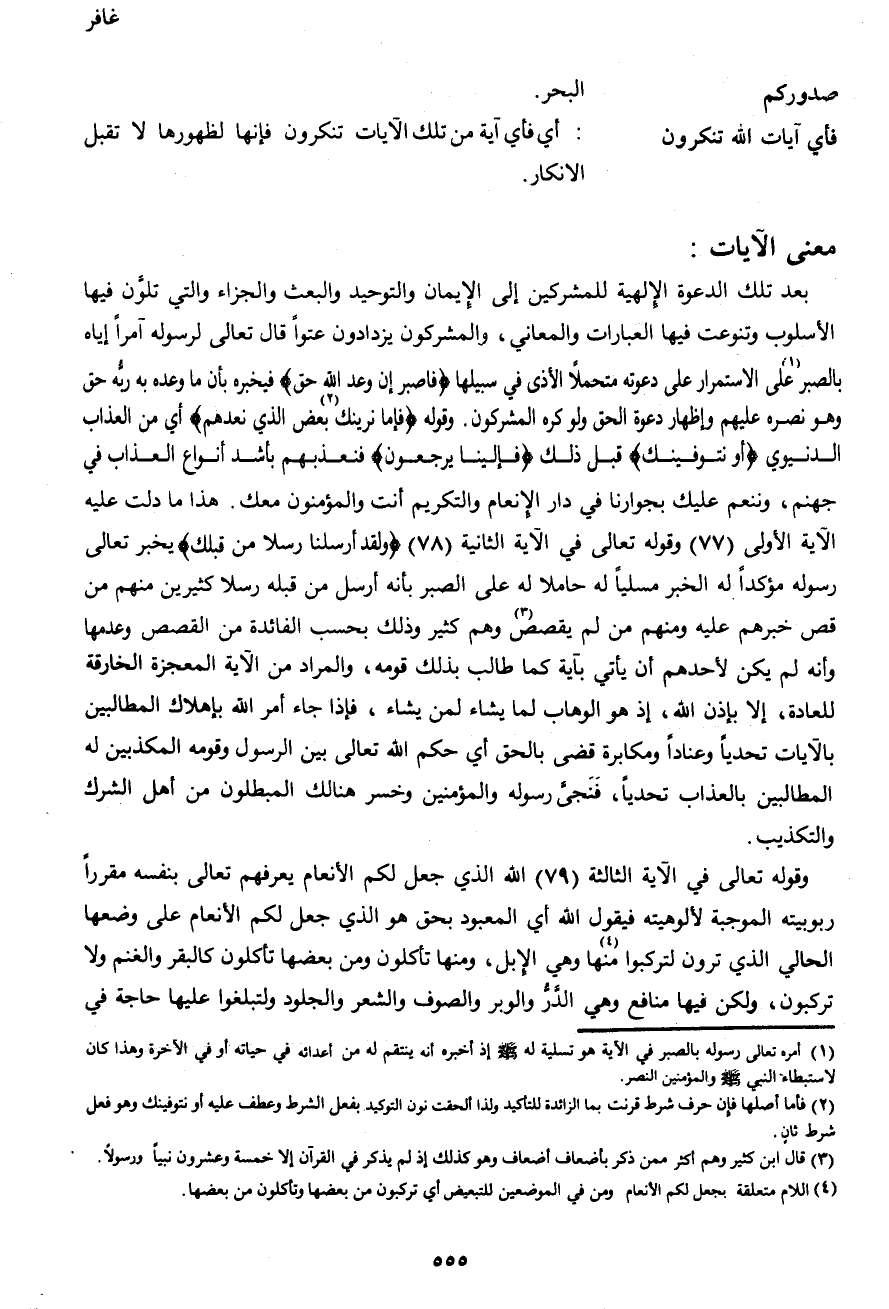 غافر
صدوركم البحر.
فأي آيات الله تنكرون : أي فأي آية من تلك الآيات تنكرون فإنها لظهورها لا تقبل
الانكار.
معنى الآيات :
بعد تلك الدعوة الإلهية للمشركين إلى الإيمان والتوحيد والبعث والجزاء والتي تلوَّن فيها
الأسلوب وتنوعت فيها العبارات والمعاني، والمشركون يزدادون عتواً قال تعالى لرسوله آمراً إياه
بالصبر(١) على الاستمرار على دعوته متحملاً الأذى في سبيلها ﴿فاصبر إن وعد الله حق﴾ فيخبره بأن ما وعده به ربُّه حق
وهو نصره عليهم وإظهار دعوة الحق ولو كره المشركون. وقوله ﴿فإما نرينك(٢) بعض الذي نعدهم﴾ أي من العذاب
الدنيوي ﴿أو نتوفينك﴾ قبل ذلك ﴿فإلينا يرجعون﴾ فنعذبهم بأشد أنواع العذاب في
جهنم، وننعم عليك بجوارنا في دار الإنعام والتكريم أنت والمؤمنون معك. هذا ما دلت عليه
الآية الأولى (٧٧) وقوله تعالى في الآية الثانية (٧٨) ﴿ولقد أرسلنا رسلا من قبلك﴾ يخبر تعالى
رسوله مؤكداً له الخبر مسلياً له حاملا له على الصبر بأنه أرسل من قبله رسلا كثيرين منهم من
قص خبرهم عليه ومنهم من لم يقصص(٣) وهم كثير وذلك بحسب الفائدة من القصص وعدمها
وأنه لم يكن لأحدهم أن يأتي بآية كما طالب بذلك قومه، والمراد من الآية المعجزة الخارقة
للعادة، إلا بإذن الله، إذ هو الوهاب لما يشاء لمن يشاء ، فإذا جاء أمر الله بإهلاك المطالبين
بالآيات تحدياً وعناداً ومكابرة قضى بالحق أي حكم الله تعالى بين الرسول وقومه المكذبين له
المطالبين بالعذاب تحدياً، فَنَجىَّ رسوله والمؤمنين وخسر هنالك المبطلون من أهل الشرك
والتكذيب.
وقوله تعالى في الآية الثالثة (٧٩) الله الذي جعل لكم الأنعام يعرفهم تعالى بنفسه مقرراً
ربوبيته الموجبة لألوهيته فيقول الله أي المعبود بحق هو الذي جعل لكم الأنعام على وضعها
الحالي الذي ترون لتركبوا منها(٤) وهي الإبل، ومنها تأكلون ومن بعضها تأكلون كالبقر والغنم ولا
تركبون، ولكن فيها منافع وهي الدَّرُّ والوبر والصوف والشعر والجلود ولتبلغوا عليها حاجة في
(١) أمره تعالى رسوله بالصبر في الآية هو تسلية له ﷺ إذ أخبره أنه ينتقم له من أعدائه في حياته أو في الآخرة وهذا كان
لاستبطاء النبي ﷺ والمؤمنين النصر.
(٢) فأما أصلها فإن حرف شرط قرنت بما الزائدة للتأكيد ولذا ألحقت نون التوكيد بفعل الشرط وعطف عليه أو نتوفينك وهو فعل
شرط ثانٍ.
(٣) قال ابن كثير وهم أكثر ممن ذكر بأضعاف أضعاف وهو كذلك إذ لم يذكر في القرآن إلا خمسة وعشرون نبياً ورسولاً.
(٤) اللام متعلقة بجعل لكم الأنعام ومن في الموضعين للتبعيض أي تركبون من بعضها وتأكلون من بعضها.
٥٥٥